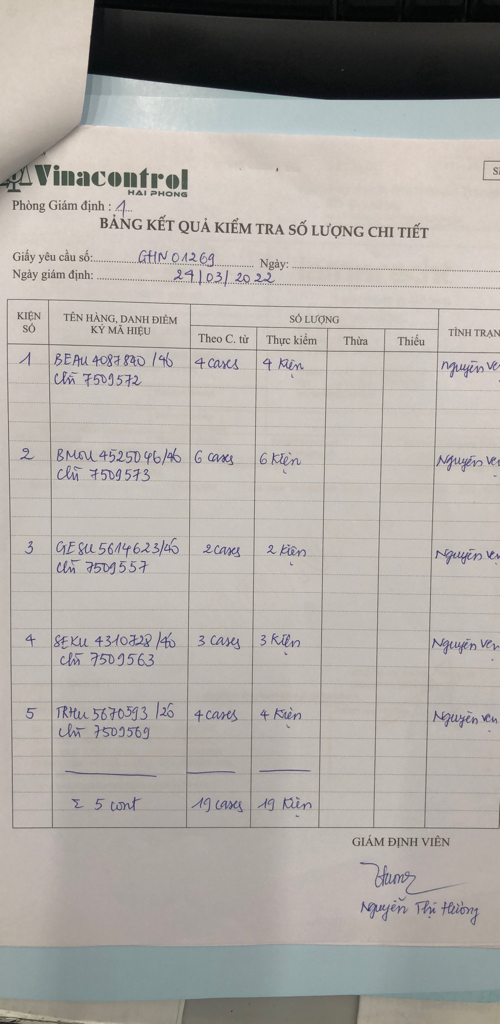 Vinacontrol
HAI PHONG
Phòng Giám định : 1
BẢNG KẾT QUẢ KIỂM TRA SỐ LƯỢNG CHI TIẾT
Giấy yêu cầu số: GHN 01269 Ngày:
Ngày giám định: 24/03/2022
KIỆN SỐ TÊN HÀNG, DANH ĐIỂM KÝ MÃ HIỆU SỐ LƯỢNG TÌNH TRẠN
Theo C. từ Thực kiểm Thừa Thiếu
1 BEAU 4087840 /40 4 cases 4 Kiện nguyên vẹ
chì 7509572
2 BMOU 4525046/40 6 cases 6 Kiện Nguyên vẹ
chì 7509573
3 GESU 5614623/40 2 cases 2 Kiện Nguyên vẹ
chì 7509557
4 SEKU 4310728 /40 3 cases 3 Kiện Nguyên vẹn
chì 7509563
5 TRHU 5670593 /20 4 cases 4 Kiện Nguyên vẹn
chì 7509569
Σ 5 cont 19 cases 19 Kiện
GIÁM ĐỊNH VIÊN
Hương
Nguyễn Thị Hường